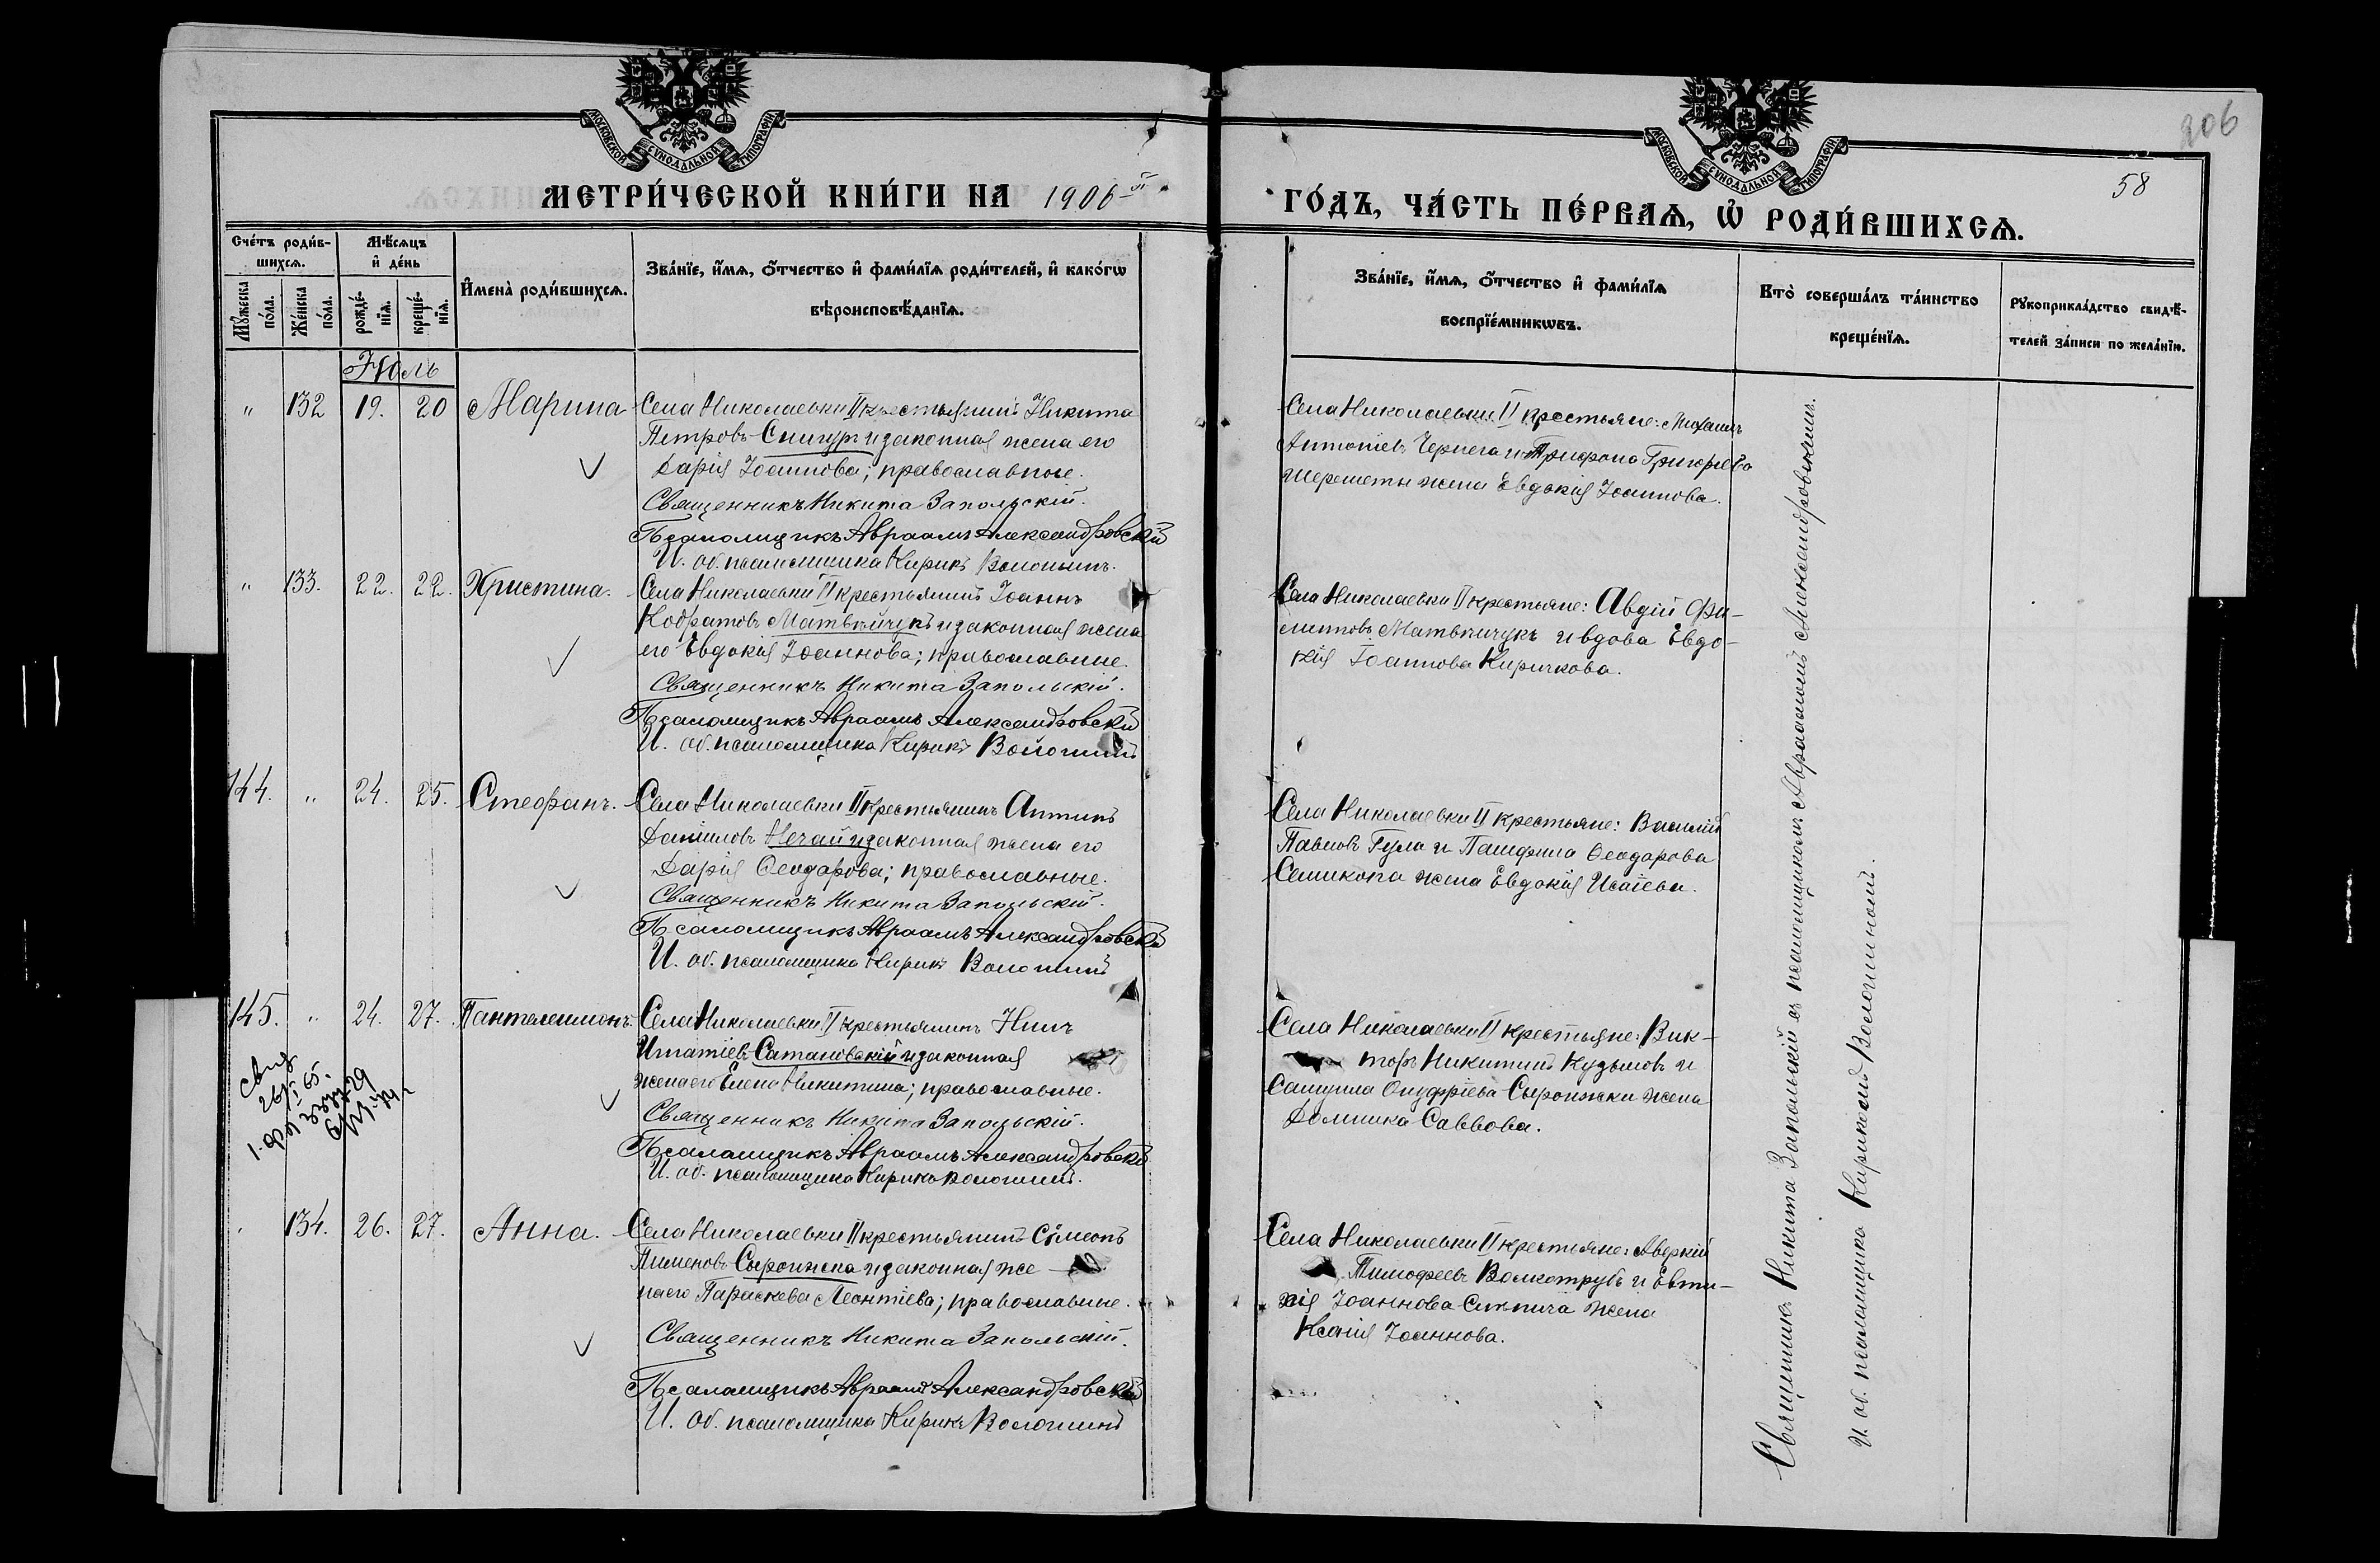 206
МОСКОВСКОЙ СѴНОДАЛЬНОЙ ТИПОГРАФІИ
МОСКОВСКОЙ СѴНОДАЛЬНОЙ ТИПОГРАФІИ
МЕТРИ́ЧЕСКОЙ КНИ́ГИ НА 1906-й
ГО́ДЪ, ЧА́СТЬ ПЕ́РВАѦ, Ѡ҆ РОДИ́ВШИХСѦ.
58
Сче́тъ роди́в-
шихсѧ.
Мѣ́сѧцъ
и҆ де́нь
Мꙋ́жеска
по́ла.
Же́нска
по́ла.
рожде́-
нїѧ.
креще́-
нїѧ.
И҆мена̀ роди́вшихсѧ.
Зва́нїе, и҆́мѧ, ѻ҆́тчество и҆ фами́лїѧ роди́телей, и҆ како́гѡ
вѣроисповѣ́данїѧ.
Зва́нїе, и҆́мѧ, ѻ҆́тчество и҆ фами́лїѧ
воспрїе́мникѡвъ.
Кто̀ соверша́лъ та́инство
креще́нїѧ.
Рꙋкоприкла́дство свидѣ́-
телей за́писи по жела́нїю.
Июль
" 132 19. 20 Марина
Села Николаевки II крестьянинъ Никита
Петровъ Снигуръ и законная жена его
Дарія Іоаннова; православные.
Священникъ Никита Запольскій.
Псаломщикъ Авраамъ Александровскій
И. об. псаломщика Кирикъ Волошинъ.
Села Николаевки II крестьяне: Михаилъ
Антоніевъ Чернега и Трифона Григорьева
Шереметы жена Евдокія Іоаннова.
" 133. 22. 22. Христина.
Села Николаевки II крестьянинъ Іоаннъ
Кодратовъ Матвѣйчукъ и законная жена
его Евдокія Іоаннова; православные.
Священникъ Никита Запольскій.
Псаломщикъ Авраамъ Александровскій
И. об. псаломщика Кирикъ Волошинъ
Села Николаевки II крестьяне: Авдій Фи-
липповъ Матвѣйчукъ и вдова Евдо-
кія Іоаннова Киричкова.
144. " 24. 25. Стефанъ.
Села Николаевки II крестьянинъ Антипъ
Даниловъ Нечай и законная жена его
Дарія Ѳеодорова; православные.
Священникъ Никита Запольскій.
Псаломщикъ Авраамъ Александровскій
И. об. псаломщика Кирикъ Волошинъ
Села Николаевки II крестьяне: Василій
Павловъ Гула и Памфила Ѳеодорова
Семикопа жена Евдокія Исаіева.
145. " 24. 27. Пантелеимонъ.
Села Николаевки II крестьянинъ Нилъ
Игнатіевъ Сатановскій и законная
жена его Елена Никитина; православные.
Священникъ Никита Запольскій.
Псаломщикъ Авраамъ Александровскій
И. об. псаломщика Кирикъ Волошинъ.
Села Николаевки II крестьяне: Вик-
торъ Никитинъ Кузьмовъ и
Самуила Онуфріева Сыроижки жена
Домника Саввова.
134. 26. 27. Анна.
Села Николаевки II крестьянинъ Сѵмеонъ
Пименовъ Сыроижка и законная же-
на его Параскева Леонтіева; православные.
Священникъ Никита Запольскій.
Псаломщикъ Авраамъ Александровскій
И. об. псаломщика Кирикъ Волошинъ
Села Николаевки II крестьяне: Аверкій
Тимофеевъ Волкотрубъ и Евти-
хія Іоаннова жена
Ксенія Іоаннова.
Священникъ Никита Запольскій съ псаломщикомъ Авраамомъ Александровскимъ.
И. об. псаломщика Кирикомъ Волошиномъ.